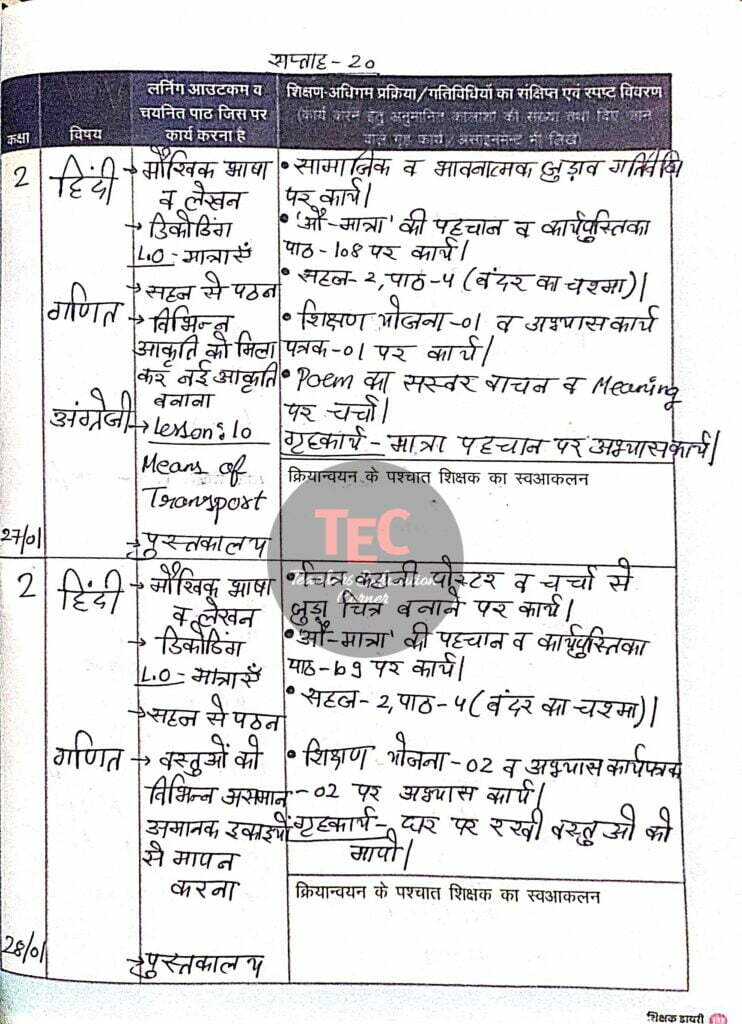 सप्ताह - 20
कक्षा
विषय
लर्निंग आउटकम व
चयनित पाठ जिस पर
कार्य करना है
शिक्षण-अधिगम प्रक्रिया/गतिविधियों का संक्षिप्त एवं स्पष्ट विवरण
(कार्य करने हेतु अनुमानित कालांशों की संख्या तथा दिए जाने
वाले गृह कार्य/असाइनमेंट भी लिखें)
2
हिंदी
→ मौखिक भाषा
व लेखन
→ डिकोडिंग
L.O - मात्राएँ
→ सहज से पठन
गणित → विभिन्न
आकृति को मिला
कर नई आकृति
बनाना
अंग्रेजी → Lesson: 10
Means of
Transport
27/01
→ पुस्तकालय
• सामाजिक व भावनात्मक जुड़ाव गतिविधि
पर कार्य।
• 'औ-मात्रा' की पहचान व कार्यपुस्तिका
पाठ-108 पर कार्य।
• सहज-2, पाठ-4 (बंदर का चश्मा)।
• शिक्षण योजना-01 व अभ्यास कार्य
पत्रक-01 पर कार्य।
• Poem का सस्वर वाचन व Meaning
पर चर्चा।
गृहकार्य - मात्रा पहचान पर अभ्यासकार्य।
क्रियान्वयन के पश्चात शिक्षक का स्वआकलन
TEC
Teachers Education
Corner
2
हिंदी
→ मौखिक भाषा
व लेखन
→ डिकोडिंग
L.O - मात्राएँ
→ सहज से पठन
गणित → वस्तुओं को
विभिन्न असमान
अमानक इकाइयों
से मापन
करना
28/01
→ पुस्तकालय
• चित्र कहानी पोस्टर व चर्चा से
जुड़ा चित्र बनाने पर कार्य।
• 'औ-मात्रा' की पहचान व कार्यपुस्तिका
पाठ-109 पर कार्य।
• सहज-2, पाठ-4 (बंदर का चश्मा)।
• शिक्षण योजना-02 व अभ्यास कार्यपत्रक
-02 पर अभ्यास कार्य।
गृहकार्य - घर पर रखी वस्तुओ को
मापो।
क्रियान्वयन के पश्चात शिक्षक का स्वआकलन
शिक्षक डायरी